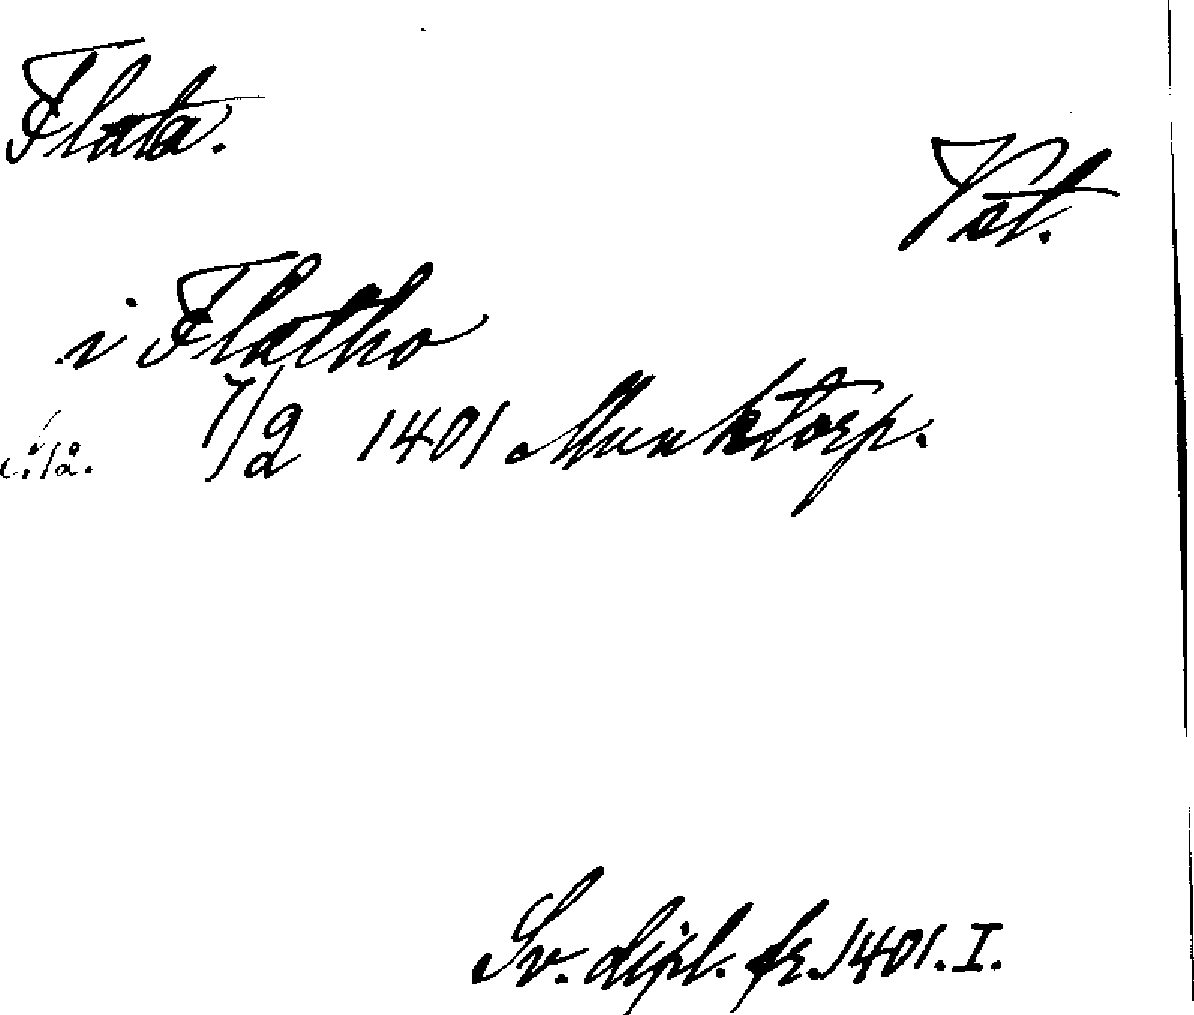 Flata.
Vät.
i Flatho
7/2 1401 Munktorp.
Sv. dipl. fr. 1401. I.